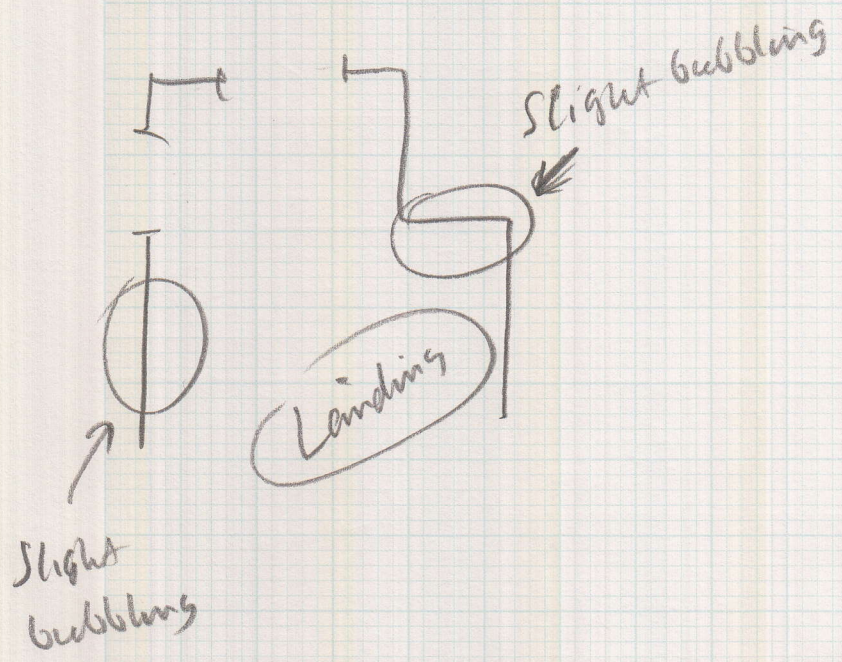 Slight bubbling
Landing
Slight
bubbling